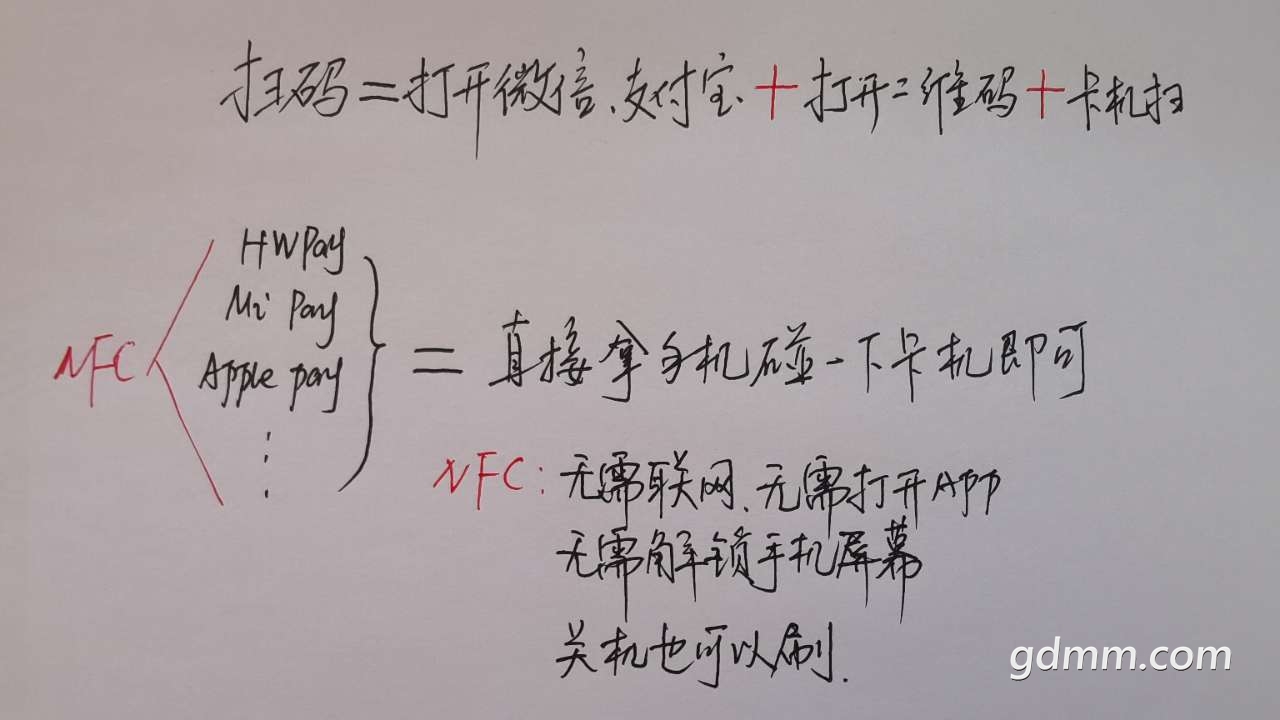 扫码=打开微信、支付宝+打开二维码+卡机扫
HW Pay
Mi Pay
NFC
Apple pay
= 直接拿手机碰一下卡机即可
NFC: 无需联网、无需打开APP
无需解锁手机屏幕
关机也可以刷.
gdmm.com